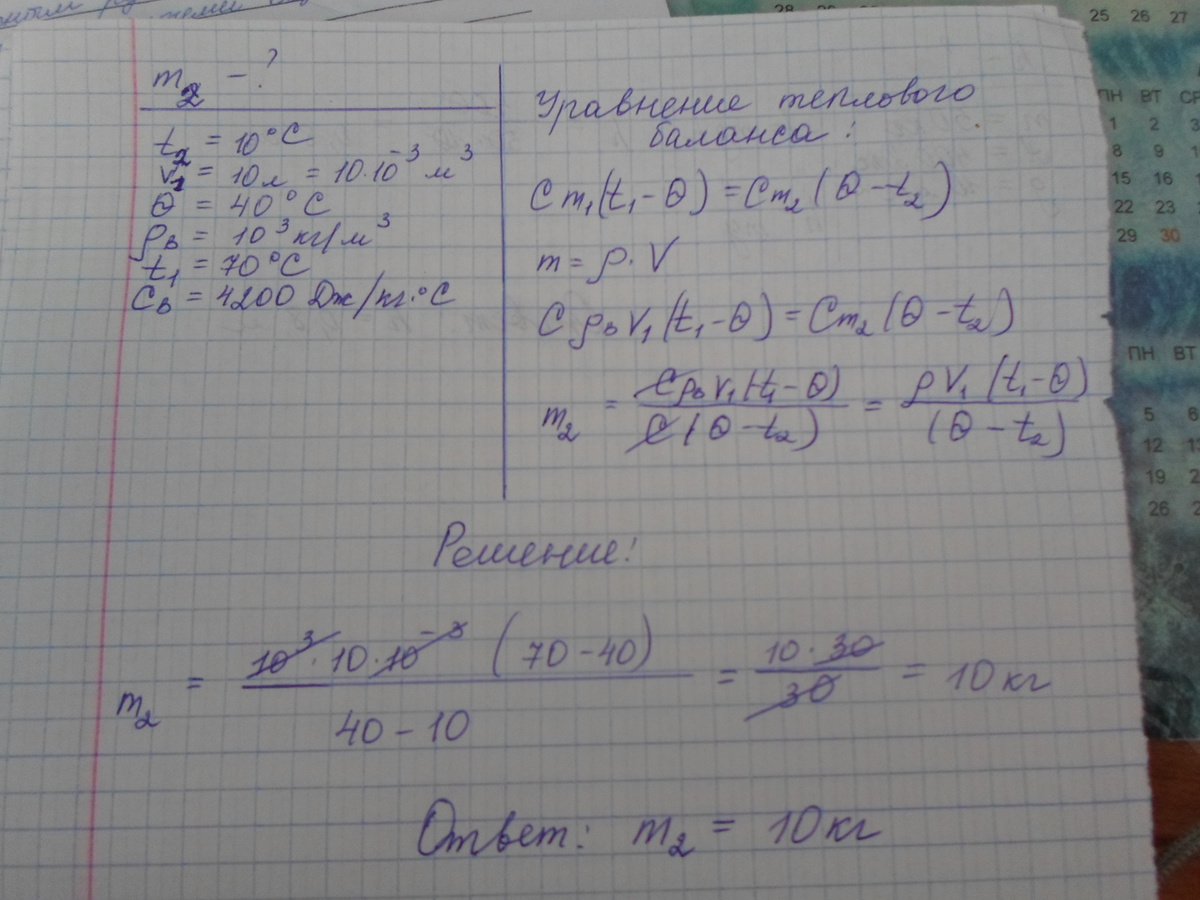 m₂ – ?
t₂ = 10°C
V₁ = 10л = 10·10⁻³ м³
Θ = 40°C
ρв = 10³ кг/м³
t₁ = 70°C
Cв = 4200 Дж/кг·°C
Уравнение теплового
баланса:
Cm₁(t₁-Θ) = Cm₂(Θ-t₂)
m = ρ·V
Cρв V₁(t₁-Θ) = Cm₂(Θ-t₂)
m₂ = Cρв V₁(t₁-Θ) / C(Θ-t₂) = ρV₁(t₁-Θ) / (Θ-t₂)
Решение:
m₂ = 10³·10·10⁻³ (70-40) / 40-10 = 10·30 / 30 = 10кг
Ответ: m₂ = 10кг
25 26 27
ПН ВТ СР
1 2 3
8 9
15 16
22 23
29 30
ПН ВТ
5 6
12 13
19
26